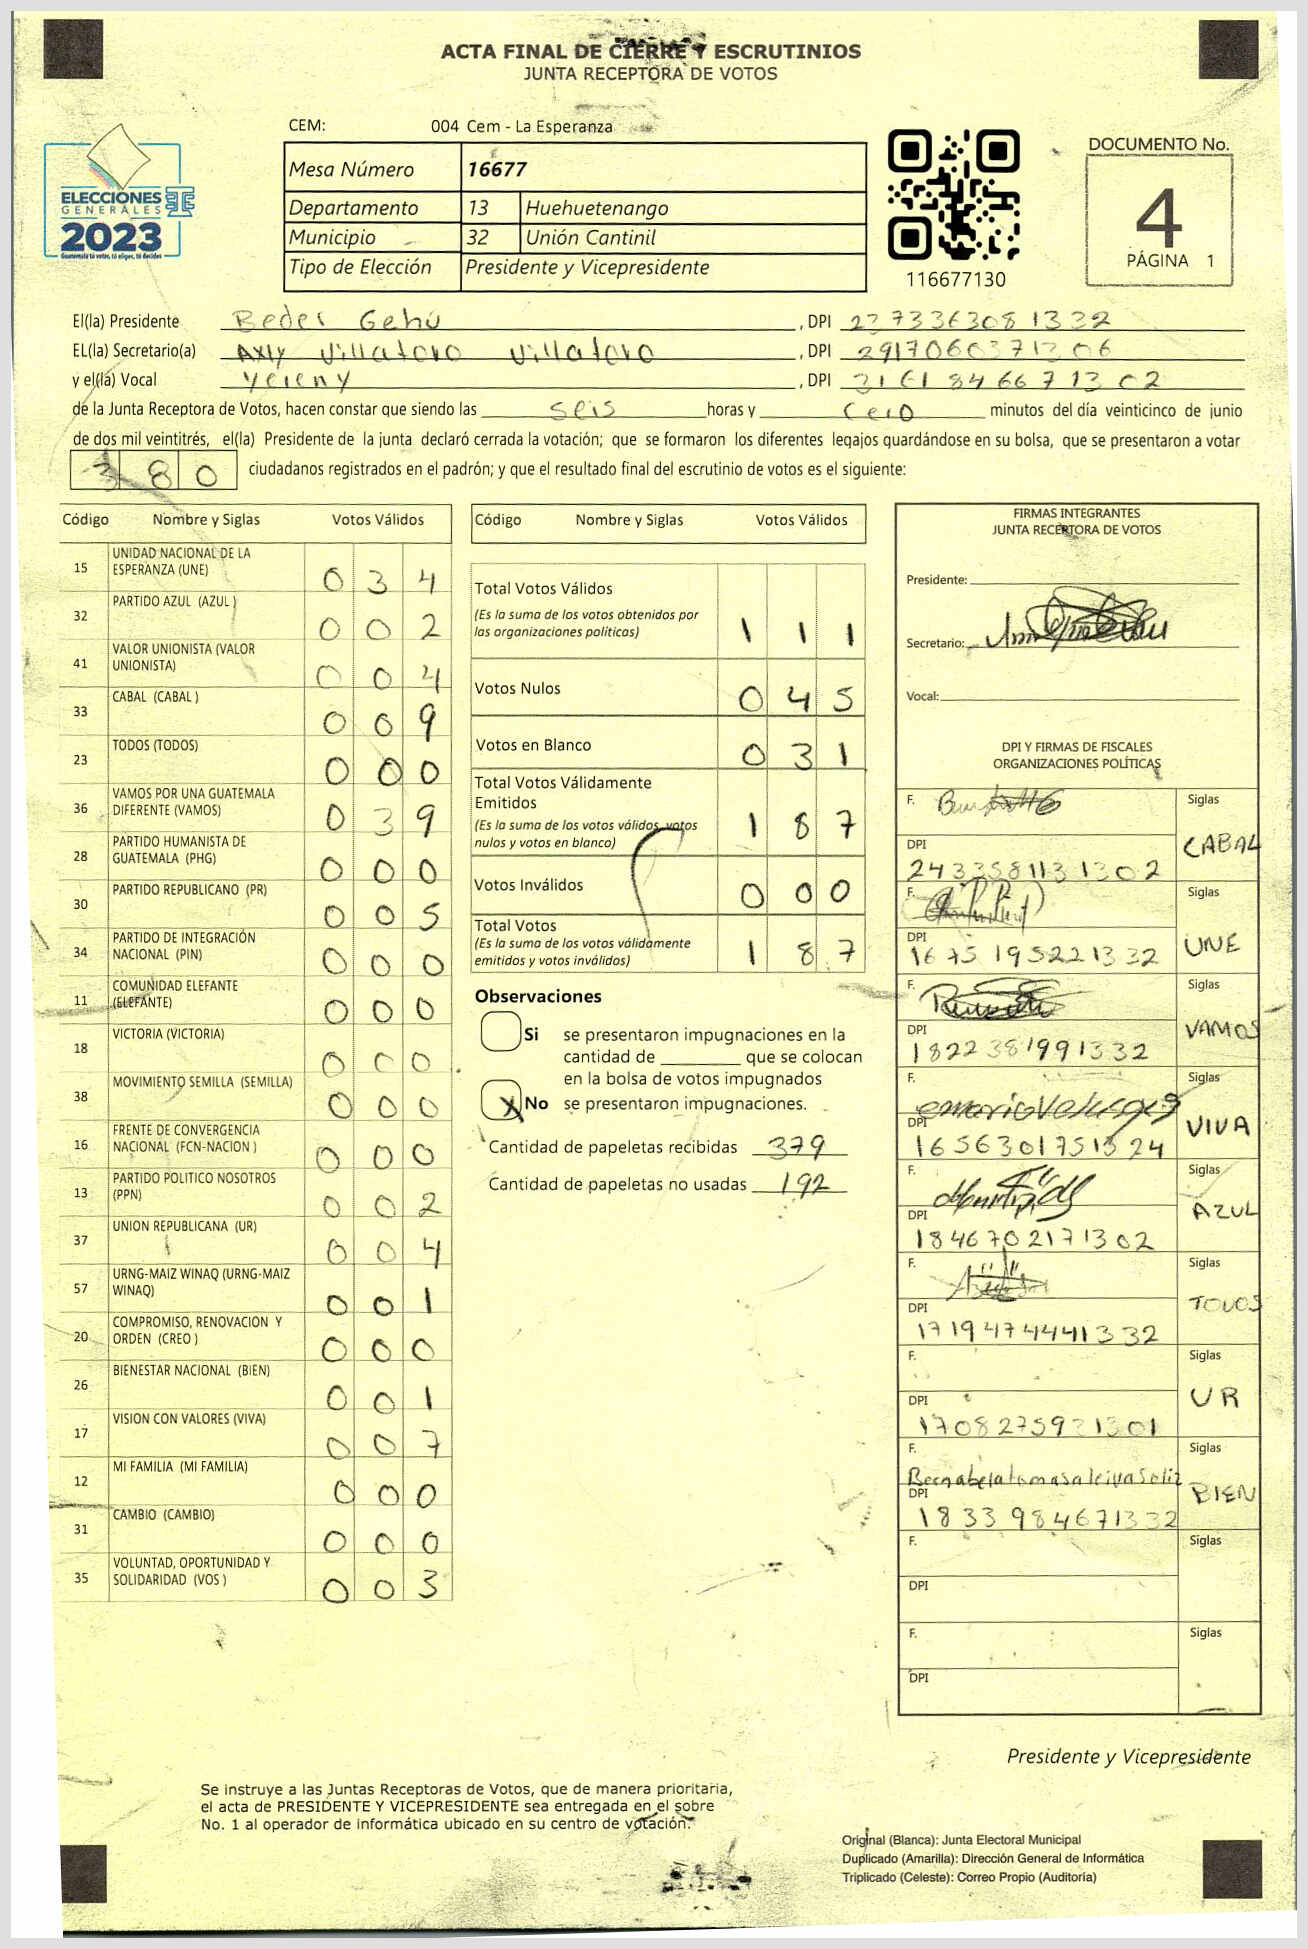 ACTA FINAL DE CIERRE Y ESCRUTINIOS
JUNTA RECEPTORA DE VOTOS
CEM: 004 Cem - La Esperanza
Mesa Número 16677
Departamento 13 Huehuetenango
Municipio 32 Unión Cantinil
Tipo de Elección Presidente y Vicepresidente
ELECCIONES
GENERALES
2023
Guatemala tú votas, tú eliges, tú decides
116677130
DOCUMENTO No.
4
PÁGINA 1
El(la) Presidente Beder Gehú , DPI 2373363081332
EL(la) Secretario(a) Axly Villatoro Villatoro , DPI 2917060371306
y el(la) Vocal Yeieny , DPI 3161846671302
de la Junta Receptora de Votos, hacen constar que siendo las seis horas y cero minutos del día veinticinco de junio
de dos mil veintitrés, el(la) Presidente de la junta declaró cerrada la votación; que se formaron los diferentes legajos guardándose en su bolsa, que se presentaron a votar
380 ciudadanos registrados en el padrón; y que el resultado final del escrutinio de votos es el siguiente:
Código Nombre y Siglas Votos Válidos
15 UNIDAD NACIONAL DE LA ESPERANZA (UNE) 0 3 4
32 PARTIDO AZUL (AZUL ) 0 0 2
41 VALOR UNIONISTA (VALOR UNIONISTA) 0 0 4
33 CABAL (CABAL ) 0 0 9
23 TODOS (TODOS) 0 0 0
36 VAMOS POR UNA GUATEMALA DIFERENTE (VAMOS) 0 3 9
28 PARTIDO HUMANISTA DE GUATEMALA (PHG) 0 0 0
30 PARTIDO REPUBLICANO (PR) 0 0 5
34 PARTIDO DE INTEGRACIÓN NACIONAL (PIN) 0 0 0
11 COMUNIDAD ELEFANTE (ELEFANTE) 0 0 0
18 VICTORIA (VICTORIA) 0 0 0
38 MOVIMIENTO SEMILLA (SEMILLA) 0 0 0
16 FRENTE DE CONVERGENCIA NACIONAL (FCN-NACION ) 0 0 0
13 PARTIDO POLITICO NOSOTROS (PPN) 0 0 2
37 UNION REPUBLICANA (UR) 0 0 4
57 URNG-MAIZ WINAQ (URNG-MAIZ WINAQ) 0 0 1
20 COMPROMISO, RENOVACION Y ORDEN (CREO ) 0 0 0
26 BIENESTAR NACIONAL (BIEN) 0 0 1
17 VISION CON VALORES (VIVA) 0 0 7
12 MI FAMILIA (MI FAMILIA) 0 0 0
31 CAMBIO (CAMBIO) 0 0 0
35 VOLUNTAD, OPORTUNIDAD Y SOLIDARIDAD (VOS ) 0 0 3
Código Nombre y Siglas Votos Válidos
Total Votos Válidos
(Es la suma de los votos obtenidos por
las organizaciones políticas) 1 1 1
Votos Nulos 0 4 5
Votos en Blanco 0 3 1
Total Votos Válidamente
Emitidos
(Es la suma de los votos válidos, votos
nulos y votos en blanco) 1 8 7
Votos Inválidos 0 0 0
Total Votos
(Es la suma de los votos válidamente
emitidos y votos inválidos) 1 8 7
Observaciones
Si se presentaron impugnaciones en la
cantidad de ________ que se colocan
en la bolsa de votos impugnados
X No se presentaron impugnaciones.
Cantidad de papeletas recibidas 379
Cantidad de papeletas no usadas 192
FIRMAS INTEGRANTES
JUNTA RECEPTORA DE VOTOS
Presidente:
Secretario:
Vocal:
DPI Y FIRMAS DE FISCALES
ORGANIZACIONES POLÍTICAS
F. Siglas
DPI CABAL
2433581131302
F. Siglas
DPI UNE
1675195221332
F. Siglas
DPI VAMOS
1822381991332
F. Siglas
DPI VIVA
1656301751324
F. Siglas
DPI AZUL
1846702171302
F. Siglas
DPI TODOS
1719474441332
F. Siglas
DPI UR
1708275931301
F. Siglas
DPI BIEN
1833984671332
F. Siglas
DPI
F. Siglas
DPI
Presidente y Vicepresidente
Se instruye a las Juntas Receptoras de Votos, que de manera prioritaria,
el acta de PRESIDENTE Y VICEPRESIDENTE sea entregada en el sobre
No. 1 al operador de informática ubicado en su centro de votación.
Original (Blanca): Junta Electoral Municipal
Duplicado (Amarilla): Dirección General de Informática
Triplicado (Celeste): Correo Propio (Auditoría)